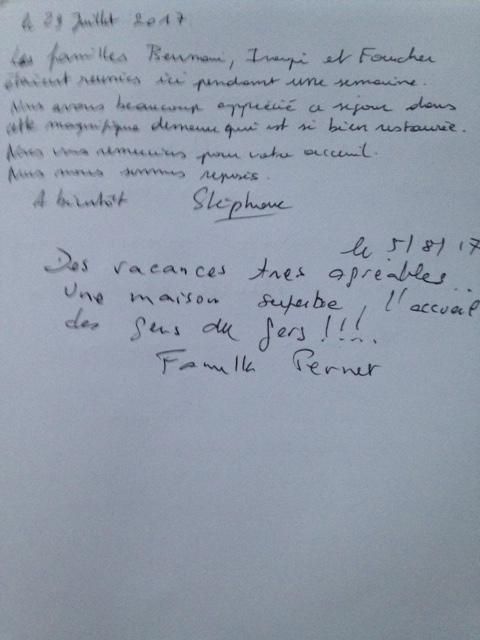 le 29 Juillet 2017
Les familles et Foucher
étaient reunies ici pendant une semaine.
Nous avons beaucoup apprécié ce séjour dans
cette magnifique demeure qui est si bien restaurée.
Nous vous remercions pour votre acceuil.
Nous nous sommes reposés.
A bientôt Stéphane
le 5/8/17
Des vacances tres agréables..
Une maison superbe, l'accueil
des gens du gers !!!...
Famille Pernet